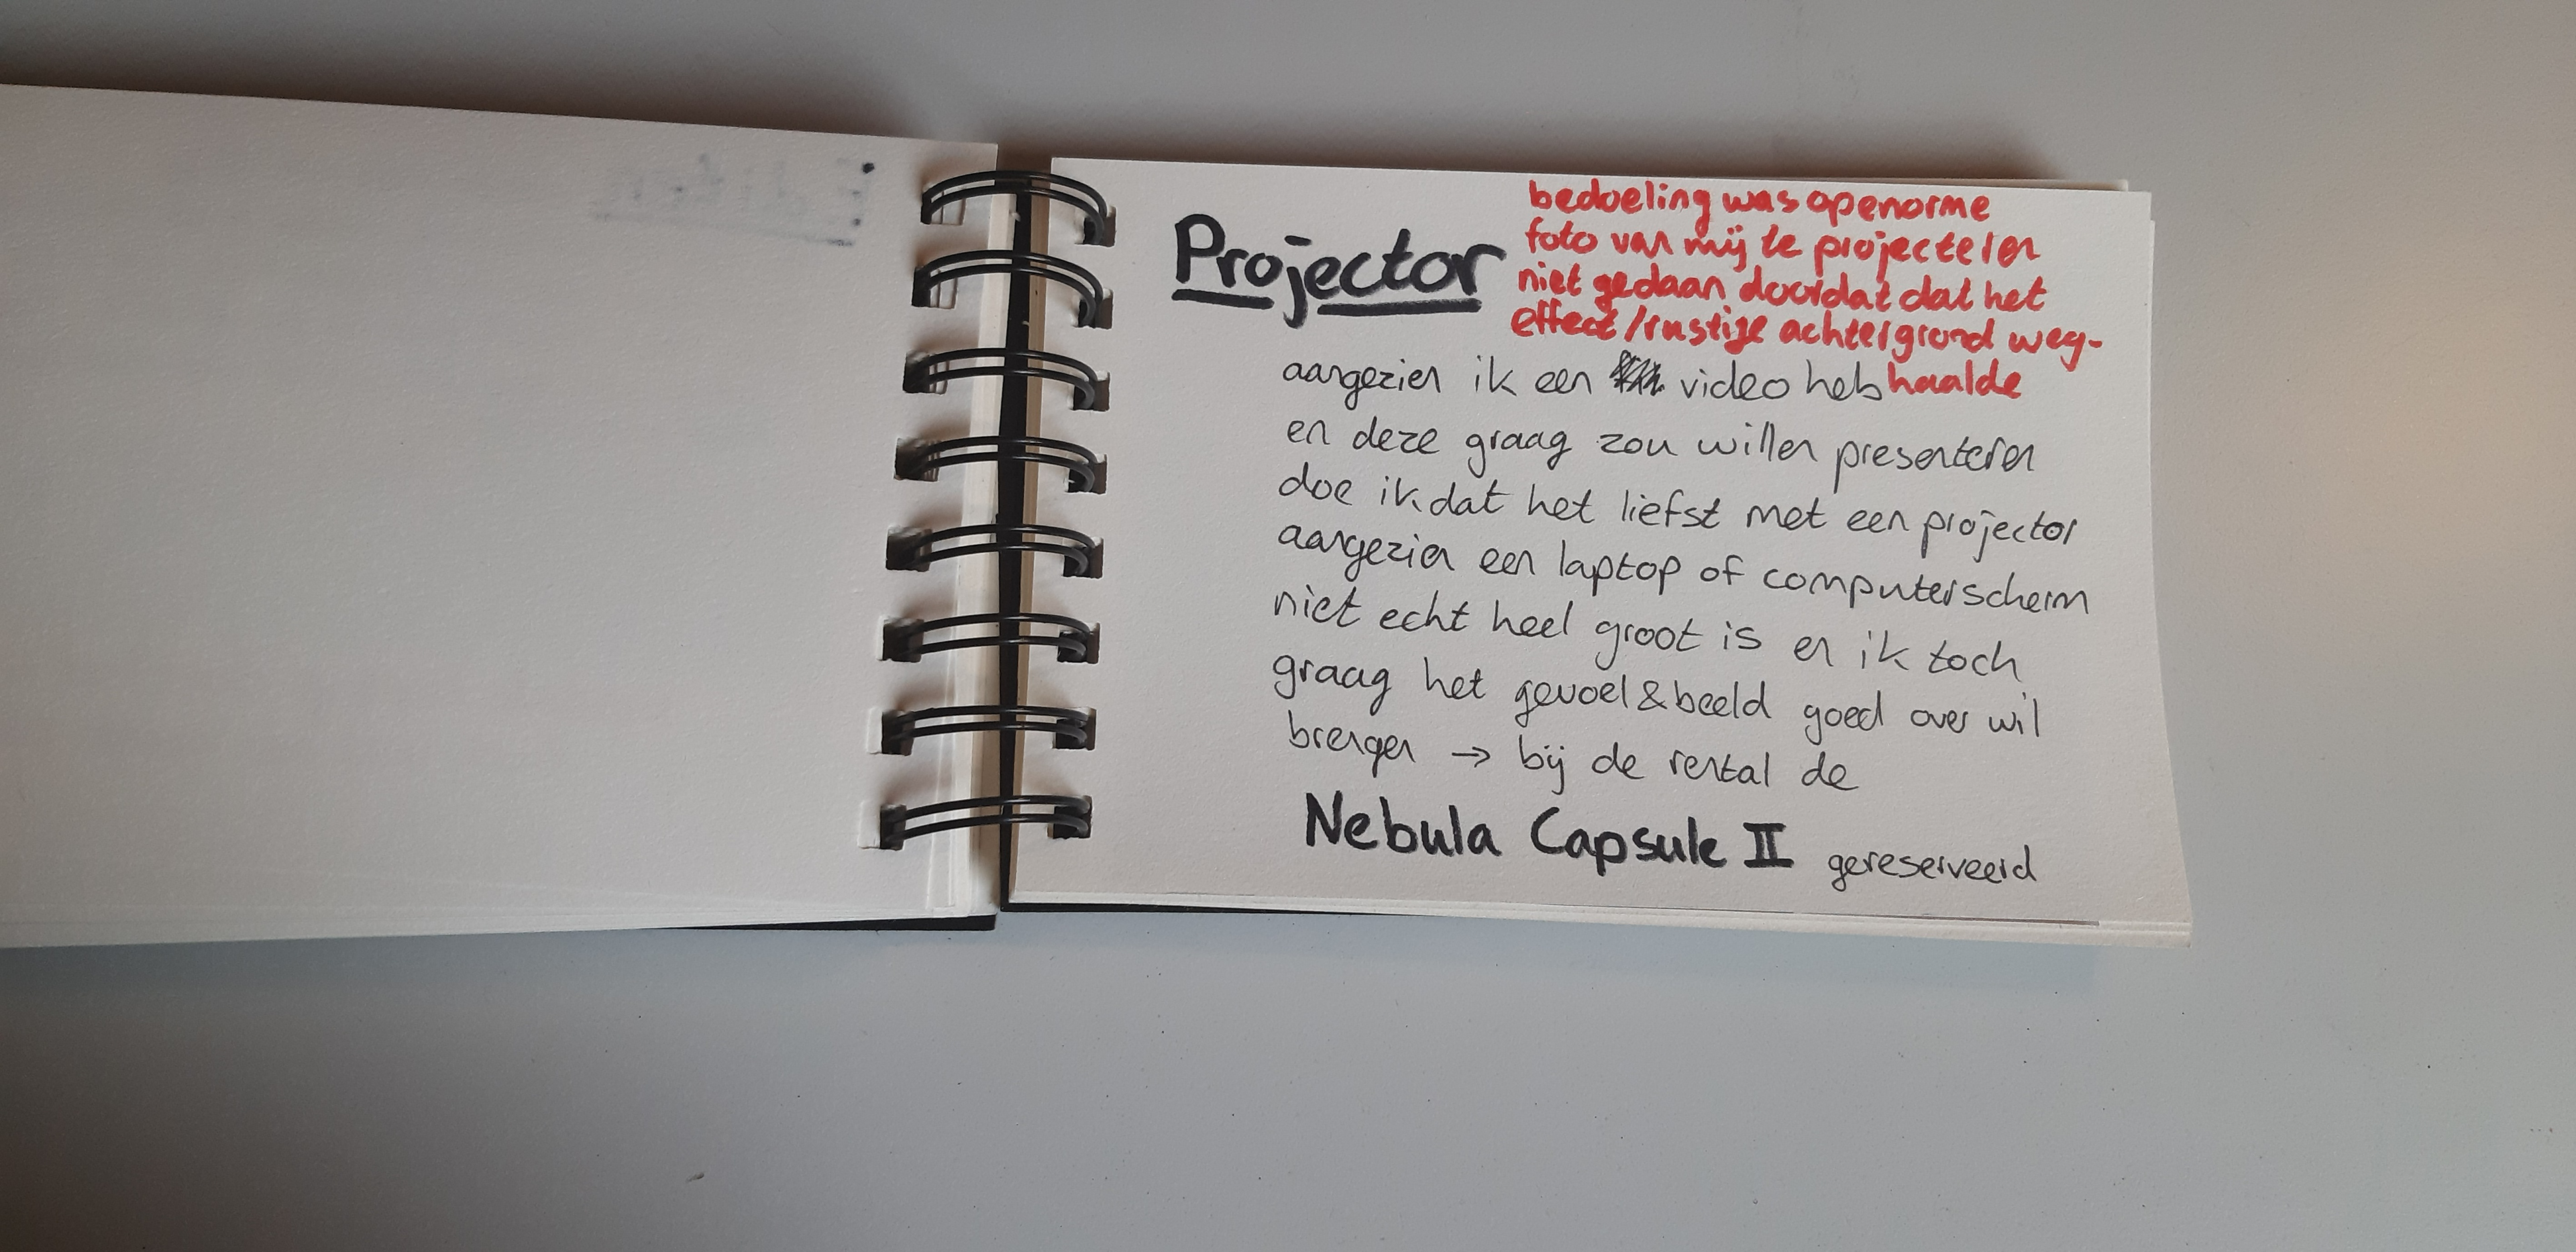 Projector
bedoeling was openorme
foto van mij te projecteren
niet gedaan doordat dat het
effect/rustige achtergrond weg-
haalde
aangezien ik een video heb
en deze graag zou willen presenteren
doe ik dat het liefst met een projector
aangezien een laptop of computerscherm
niet echt heel groot is en ik toch
graag het gevoel & beeld goed over wil
brengen → bij de rental de
Nebula Capsule II gereserveerd